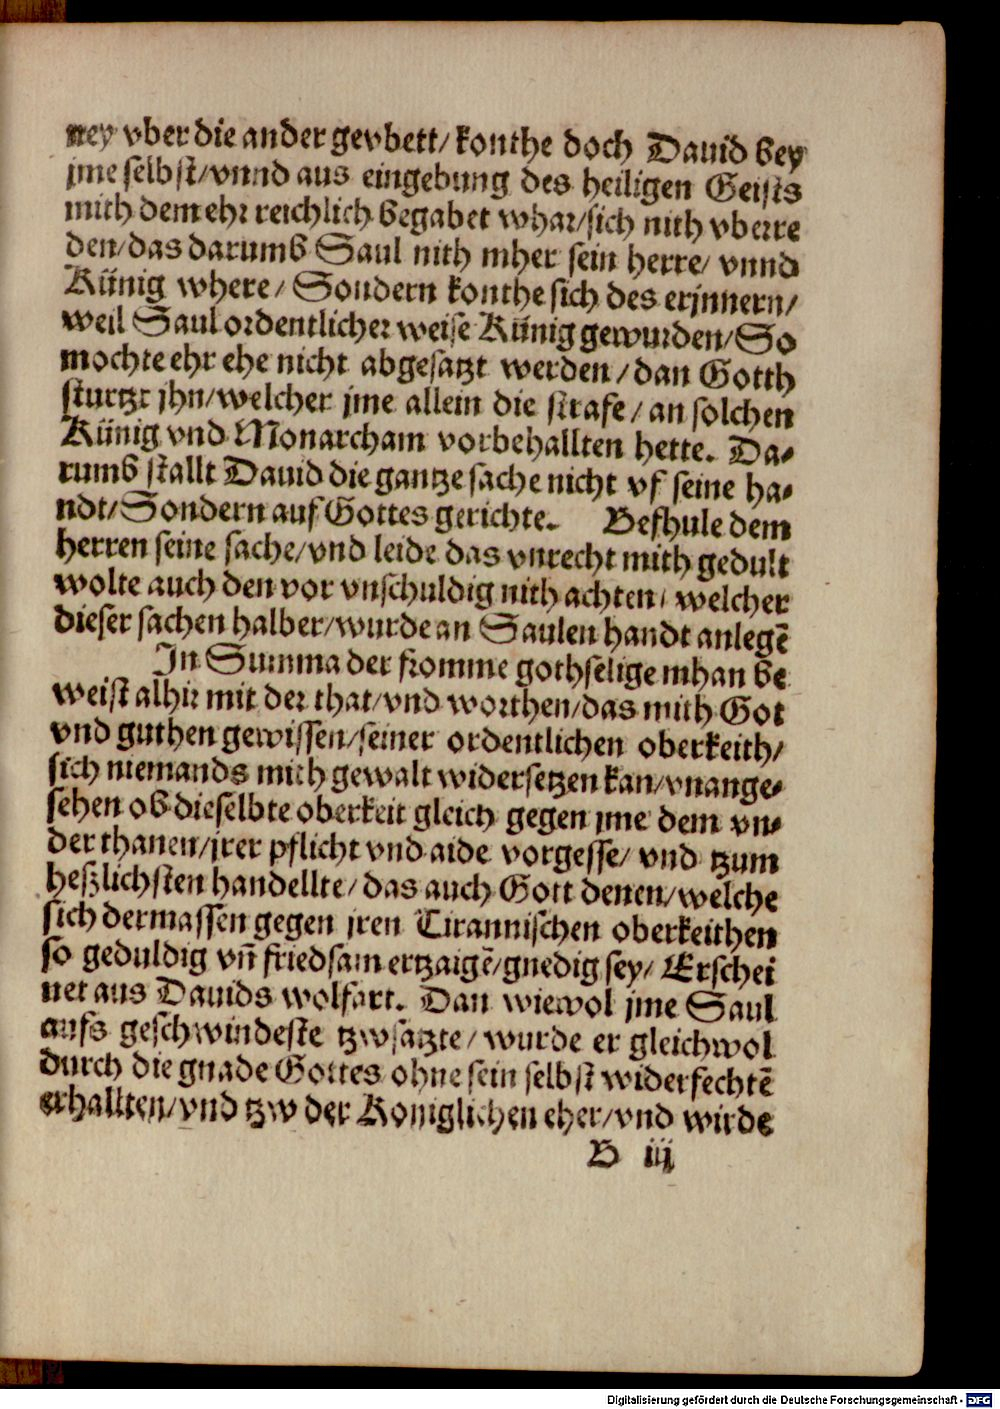 ney vber die ander gevbett/ konthe doch Dauid bey
jme selbst/vnnd aus eingebung des heiligen Geists
mith dem ehr reichlich begabet whar/sich nith vberre
den/das darumb Saul nith mher sein herre/ vnnd
Künig where/ Sondern konthe sich des erjnnern/
weil Saul ordentlicher weise Künig gewurden/So
mochte ehr ehe nicht abgesatzt werden/dan Gotth
sturtzt jhn/welcher jme allein die strafe/an solchen
Künig vnd Monarcham vorbehallten hette. Da-
rumb stallt Dauid die gantze sache nicht vf seine ha-
ndt/Sondern auf Gottes gerichte. Befhule dem
herren seine sache/vnd leide das vnrecht mith gedult
wolte auch den vor vnschuldig nith achten/ welcher
dieser sachen halber/wurde an Saulen handt anlegē
In Summa der fromme gothselige mhan be
weist alhir mit der that/vnd worthen/das mith Got
vnd guthen gewissen/seiner ordentlichen oberkeith/
sich niemands mith gewalt widersetzen kan/vnange-
sehen ob dieselbte oberkeit gleich gegen jme dem vn-
der thanen/jrer pflicht vnd aide vorgesse/ vnd tzum
heßlichsten handellte/das auch Gott denen/welche
sich dermassen gegen jren Tirannischen oberkeithen
so geduldig vn̄ friedsam ertzaigē/gnedig sey/ Erschei
net aus Dauids wolfart. Dan wiewol jme Saul
aufs geschwindeste tzwsatzte/ wurde er gleichwol
durch die gnade Gottes ohne sein selbst widerfechtē
erhallten/vnd tzw der Koniglichen eher/vnd wirde
B iij
Digitalisierung gefördert durch die Deutsche Forschungsgemeinschaft - DFG